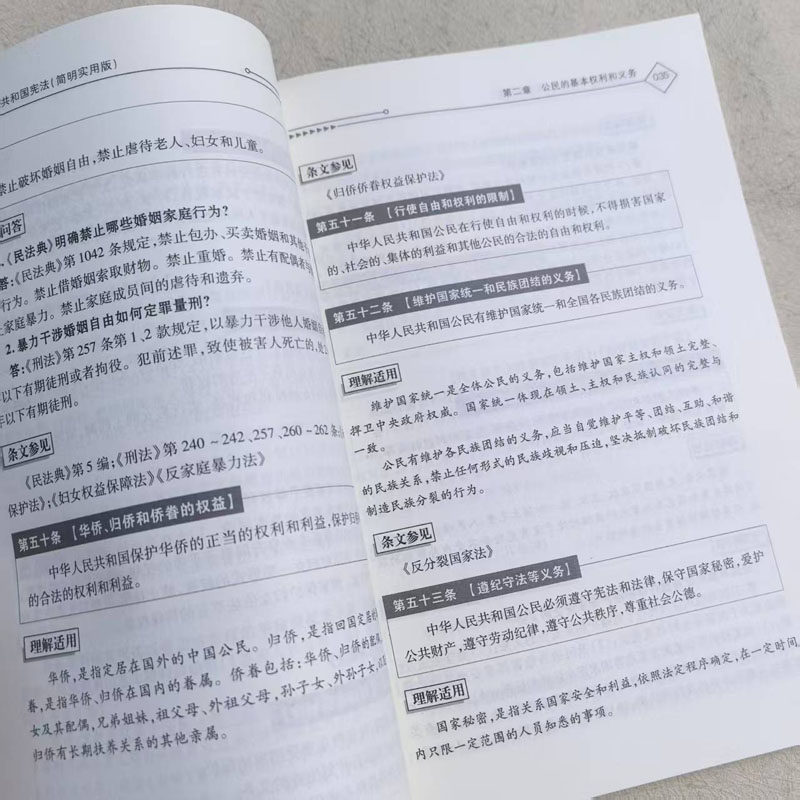 共和国宪法(简明实用版)
禁止破坏婚姻自由,禁止虐待老人、妇女和儿童。
问答
1.《民法典》明确禁止哪些婚姻家庭行为?
答:《民法典》第 1042 条规定,禁止包办、买卖婚姻和其他
行为。禁止借婚姻索取财物。禁止重婚。禁止有配偶者
家庭暴力。禁止家庭成员间的虐待和遗弃。
2. 暴力干涉婚姻自由如何定罪量刑?
答:《刑法》第 257 条第 1、2 款规定,以暴力干涉他人婚姻
以下有期徒刑或者拘役。犯前述罪,致使被害人死亡的,处
年以下有期徒刑。
条文参见
《民法典》第 5 编;《刑法》第 240 ~ 242、257、260 ~ 262 条
保护法》;《妇女权益保障法》《反家庭暴力法》
第五十条 【华侨、归侨和侨眷的权益】
中华人民共和国保护华侨的正当的权利和利益,保护归侨
的合法的权利和利益。
理解适用
华侨,是指定居在国外的中国公民。归侨,是指回国定居的
眷,是指华侨、归侨在国内的眷属。侨眷包括:华侨、归侨的配偶
女及其配偶,兄弟姐妹,祖父母、外祖父母,孙子女、外孙子女,以及
归侨有长期扶养关系的其他亲属。
第二章 公民的基本权利和义务 035
条文参见
《归侨侨眷权益保护法》
第五十一条 【行使自由和权利的限制】
中华人民共和国公民在行使自由和权利的时候,不得损害国家
的、社会的、集体的利益和其他公民的合法的自由和权利。
第五十二条 【维护国家统一和民族团结的义务】
中华人民共和国公民有维护国家统一和全国各民族团结的义务。
理解适用
维护国家统一是全体公民的义务,包括维护国家主权和领土完整、
捍卫中央政府权威。国家统一体现在领土、主权和民族认同的完整与
一致。
公民有维护各民族团结的义务,应当自觉维护平等、团结、互助、和谐
的民族关系,禁止任何形式的民族歧视和压迫,坚决抵制破坏民族团结和
制造民族分裂的行为。
条文参见
《反分裂国家法》
第五十三条 【遵纪守法等义务】
中华人民共和国公民必须遵守宪法和法律,保守国家秘密,爱护
公共财产,遵守劳动纪律,遵守公共秩序,尊重社会公德。
理解适用
国家秘密,是指关系国家安全和利益,依照法定程序确定,在一定时间
内只限一定范围的人员知悉的事项。